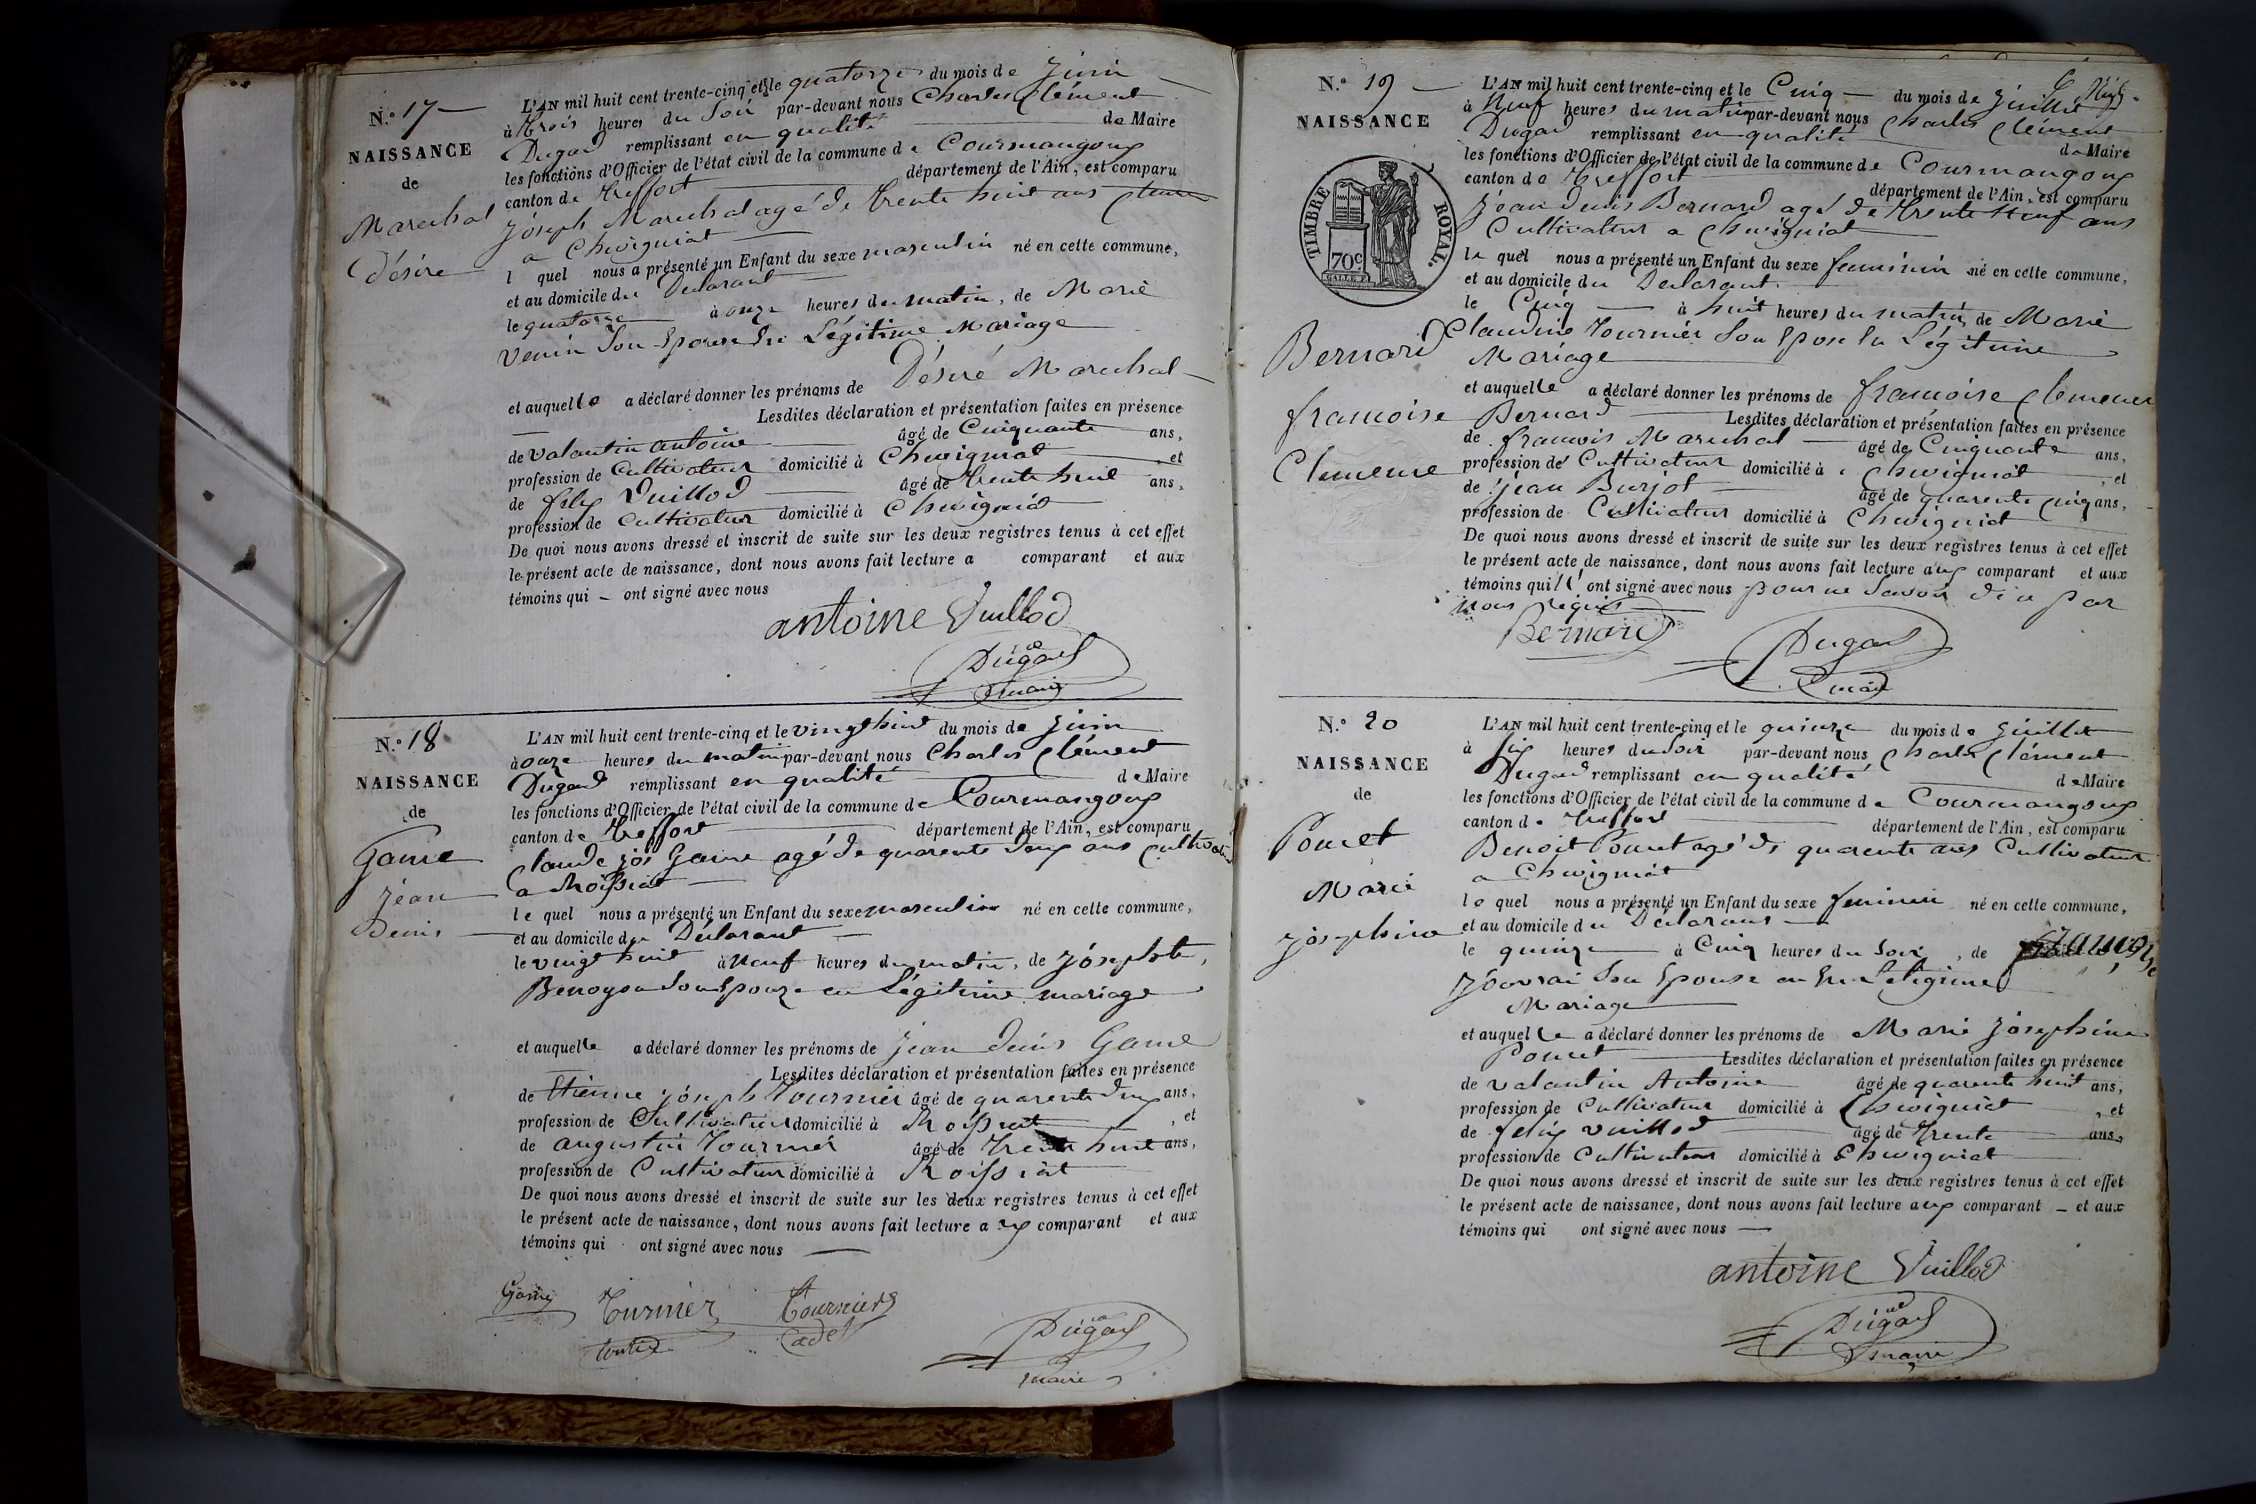 N.° 17
NAISSANCE
de
Marechal
Désiré
L'AN mil huit cent trente-cinq et le quatorze du mois de juin
à trois heures du soir par-devant nous Charles Clément
Dugad remplissant en qualité de Maire
les fonctions d'Officier de l'état civil de la commune de Courmangoux
canton de Treffort département de l'Ain, est comparu
Joseph Marechal agé de trente huit ans
a Chevigniat
l quel nous a présenté un Enfant du sexe masculin né en cette commune,
et au domicile du Déclarant
le quatorze à onze heures du matin, de Marie
Venin Son Epouse En Légitime Mariage
et auquelle a déclaré donner les prénoms de Désiré Marechal
Lesdites déclaration et présentation faites en présence
de valantin antoine âgé de Cinquante ans,
profession de Cultivateur domicilié à Chevigniat et
de felix Vuillod âgé de trente huit ans,
profession de Cultivateur domicilié à Chevigniat
De quoi nous avons dressé et inscrit de suite sur les deux registres tenus à cet effet
le présent acte de naissance, dont nous avons fait lecture a comparant et aux
témoins qui ont signé avec nous
antoine Vuillod
Dugad
maire
N.° 18
NAISSANCE
de
Game
Jean
Denis
L'AN mil huit cent trente-cinq et le vingt huit du mois de juin
à onze heures du matin par-devant nous Charles Clément
Dugad remplissant en qualité de Maire
les fonctions d'Officier de l'état civil de la commune de Courmangoux
canton de Treffort département de l'Ain, est comparu
Claude jos Game agé de quarente deux ans Cultivateur
a Roissiat
le quel nous a présenté un Enfant du sexe masculin né en cette commune,
et au domicile du Déclarant
le vingt huit à Neuf heures du matin, de Joséphte
Son Epouze en Légitime mariage
et auquelle a déclaré donner les prénoms de Jean Denis Game
Lesdites déclaration et présentation faites en présence
de Etienne joseph Tournier âgé de quarente deux ans,
profession de Cultivateur domicilié à Roissiat, et
de augustin Tournier âgé de Trente huit ans,
profession de Cultivateur domicilié à Roissiat
De quoi nous avons dressé et inscrit de suite sur les deux registres tenus à cet effet
le présent acte de naissance, dont nous avons fait lecture a ux comparant et aux
témoins qui ont signé avec nous
Game Turnier Tournier
Cadet
Dugad
maire
N.° 19
NAISSANCE
TIMBRE ROYAL.
70c
Bernard
francoise
Clemence
L'AN mil huit cent trente-cinq et le Cinq du mois de juillet
à Neuf heures du matin par-devant nous Charles Clément
Dugad remplissant en qualité de Maire
les fonctions d'Officier de l'état civil de la commune de Courmangoux
canton de Treffort département de l'Ain, est comparu
Jean denis Bernard agé de trente Neuf ans
Cultivateur a Chevigniat
le quel nous a présenté un Enfant du sexe feminin né en cette commune,
et au domicile du Declarant
le Cinq à huit heures du matin, de Marie
Claudine Tournier Son Epose En Légitime
Mariage
et auquelle a déclaré donner les prénoms de francoise Clemence
Bernard Lesdites déclaration et présentation faites en présence
de francois Marechal âgé de Cinquante ans,
profession de Cultivateur domicilié à Chevigniat, et
de jean Burjot âgé de quarente Cinq ans,
profession de Cultivateur domicilié à Chevigniat
De quoi nous avons dressé et inscrit de suite sur les deux registres tenus à cet effet
le présent acte de naissance, dont nous avons fait lecture aux comparant et aux
témoins qui n' ont signé avec nous pour ne Savoir de ce par
nous requis
Bernard
Dugad
maire
N.° 20
NAISSANCE
de
Poncet
Marie
joséphine
L'AN mil huit cent trente-cinq et le quinze du mois de juillet
à six heures du soir par-devant nous Charles Clément
Dugad remplissant en qualité de Maire
les fonctions d'Officier de l'état civil de la commune de Courmangoux
canton de Treffort département de l'Ain, est comparu
Benoit Poncet agé de quarente ans Cultivateur
a Chevigniat
le quel nous a présenté un Enfant du sexe feminin né en cette commune,
et au domicile du Déclarant
le quinze à Cinq heures du soir, de
Son Epouse en
Mariage
et auquel le a déclaré donner les prénoms de Marie joséphine
Poncet Lesdites déclaration et présentation faites en présence
de valantin Antoine âgé de quarente huit ans,
profession de Cultivateur domicilié à Chevigniat, et
de felix vuillod âgé de trente ans,
profession de Cultivateur domicilié à Chevigniat
De quoi nous avons dressé et inscrit de suite sur les deux registres tenus à cet effet
le présent acte de naissance, dont nous avons fait lecture aux comparant et aux
témoins qui ont signé avec nous
antoine Vuillod
Dugad
maire